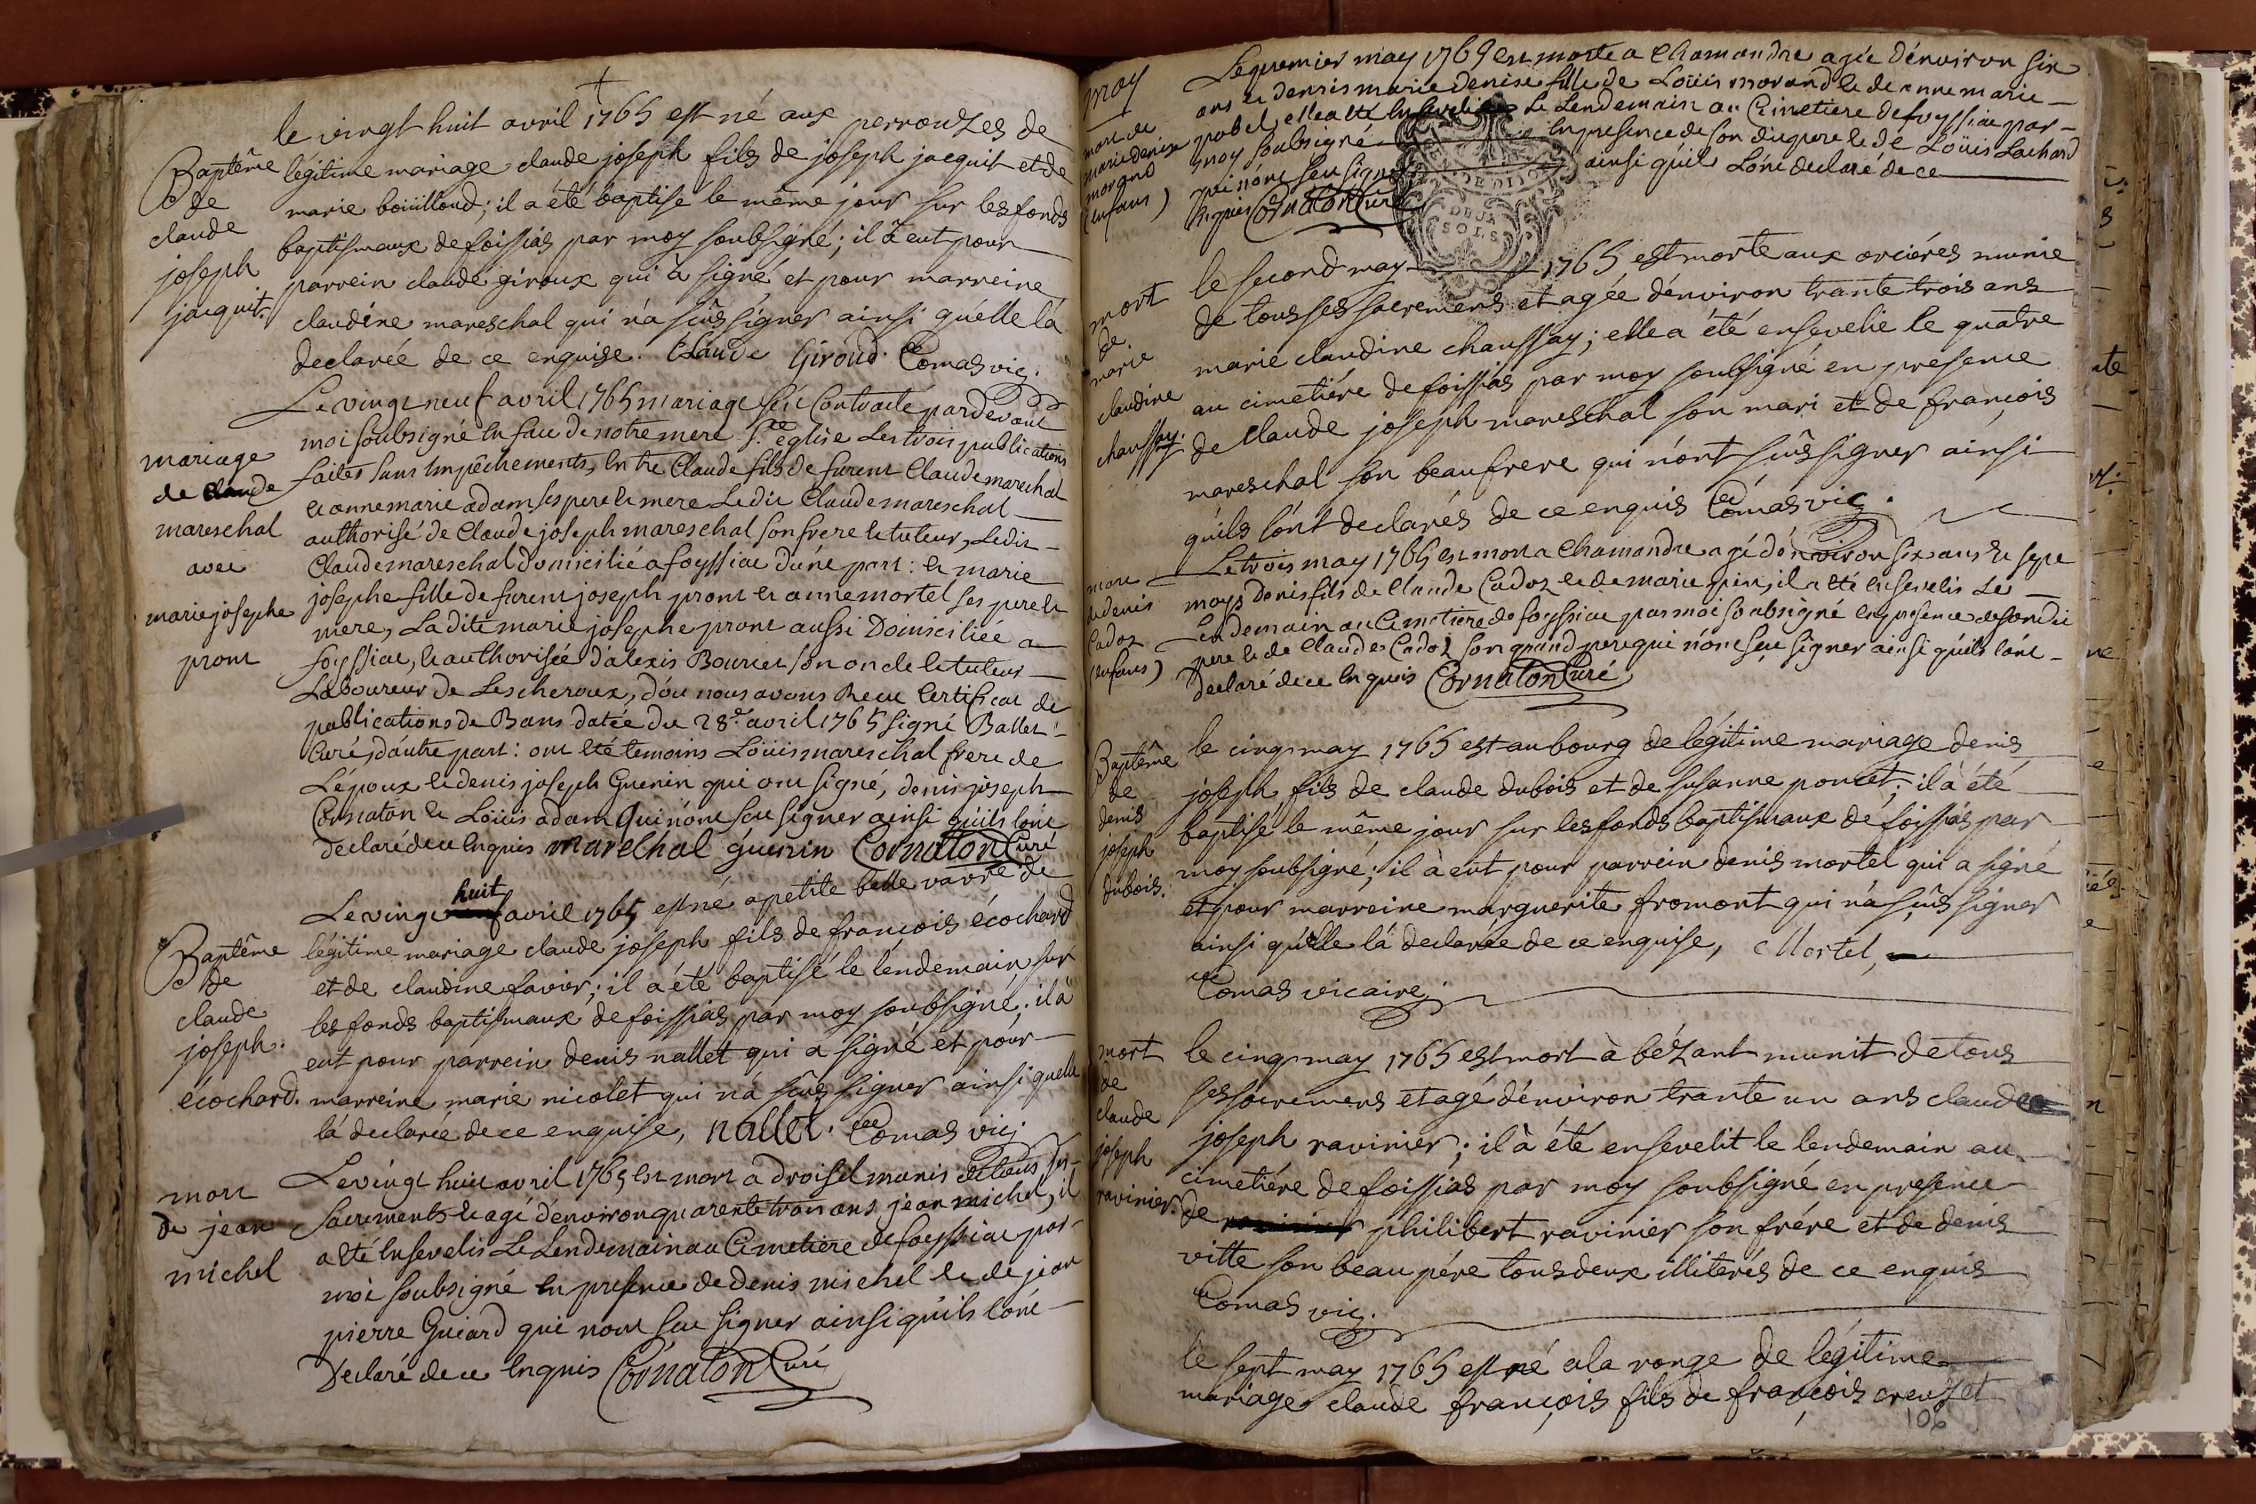 Baptême
de
claude
joseph
jacquit.
le vingt huit avril 1765 est né aux perrouses de
légitime mariage claude joseph fils de joseph jacquit et de
marie boüilloud; il a été baptisé le même jour sur les fonds
baptismaux de foissias par moy soubsigné; il à eut pour
parrein claude giroux qui à signé et pour marreine
claudine mareschal qui n'á sûs signer ainsi qu'elle la
declarée de ce enquise. Claude Giroud. Comas vic.
mariage
de Claude
mareschal
avec
marie josephe
pront
Le vingt neuf avril 1765 mariage sést Contracté pardevant
moi soubsigné en face de notre mere Ste église les trois publications
faites sans Empêchements, Entre Claude fils de furent Claude mareschal
et anne marie adam ses pere et mere Ledit Claude mareschal
authorisé de Claude joseph mareschal son frere et tuteur, Ledit
Claude mareschal domicilié a foyssiac d'uné part: et marie
josephe fille de furent joseph pront et anne mortel ses pere et
mere, La dite marie josephe pront aussi Domiciliée a
foyssiac, et authorisée d'alexis Bourcet son oncle et tuteur
Laboureur de Lescheroux, d'ou nous avons Recu Certificat de
publications de Bans datée du 28e avril 1765 signé Ballet
Curé, d'autre part: ont été temoins Loüis mareschal frere de
L'époux et denis joseph Guenin qui ont signé, denis joseph
Cornaton et Loüis adam qui n'ont scu signer ainsi qu'ils l'ont
declaré de ce Enquis marechal guenin Cornaton Curé
Baptême
de
claude
joseph.
écochard.
Le vingt huit avril 1765 est né a petite belle vavre de
légitime mariage claude joseph fils de francois écochard
et de claudine favier; il a été baptisé le lendemain sur
les fonds baptismaux de foissias par moy soubsigné; il à
eut pour parrein denis nallet qui a signé et pour
marreine marie nicolet qui n'á sûs signer ainsi quelle
lá declarée de ce enquise, nallet. Comas vic.
mort
de jean
michel
Le vingt huit avril 1765 est mort a droisel munis de tous ses
Sacrements et agé d'environ quarente trois ans jean michel, il
a été Ensevelis Le Lendemain au Cimetiere de foyssiac par
moi soubsigné En presence de denis michel et de jean
pierre Guiard qui n'ont scu signer ainsi qu'ils l'ont
Declaré de ce Enquis Cornaton Curé
may
mort de
marie denise
morand
(enfans)
Le premier may 1765 est morte a Chamandre agée d'environ six
ans et demis marie denise fille de Loüis morand et de anne marie
pobel, elle a été Ensevelie Le Lendemain au Cimetiere de foyssiac par
moy soubsigné En presence de son dit pere et de Loüis Lachard
qui n'ont scu signer ainsi qu'ils L'ont declaré de ce
Enquis Cornaton Curé
DE DIJON
DEUX
SOLS
mort
de
marie
claudine
chaussay.
le second may 1765 est morte aux orciéres munie
de tous ses sacremens et agée d'environ trante trois ans
marie claudine chaussay; elle a été ensevelie le quatre
au cimetiére de foissias par moy soubsigné en presence
de claude joseph mareschal son mari et de francois
mareschal son beaufrere qui n'ont sûs signer ainsi
qu'ils l'ont declarés de ce enquis Comas vic.
mort
de denis
Cadoz
(enfans)
Le trois may 1765 est mort a Chamandre agé d'environ six ans et sept
moys denis fils de Claude Cadoz et de marie pin, il a été Ensevelis Le
Lendemain au Cimetiere de foyssiac par moi soubsigné En presence de son dit
pere et de Claude Cadoz son grand pere qui n'ont scu signer ainsi qu'ils l'ont
declaré de ce Enquis Cornaton Curé
Baptême
de
denis
joseph
dubois.
le cinq may 1765 est au bourg de légitime mariage denis
joseph fils de claude dubois et de susanne poncet; il à été
baptisé le même jour sur les fonds baptismaux de foissias par
moy soubsigné; il à eut pour parrein denis mortel qui a signé
et pour marreine marguerite fromont qui n'á sûs signer
ainsi qu'elle lá declarée de ce enquise, Mortel,
Comas vicaire.
mort
de
claude
joseph
ravinier.
le cinq may 1765 est mort à bézant munit de tous
ses sacremens et agé d'environ trante un ans claude
joseph ravinier; il à été ensevelit le lendemain au
cimetiére de foissias par moy soubsigné en presence
de philibert ravinier son frére et de denis
vitte son beau pére tous deux illiterés de ce enquis
Comas vic.
le sept may 1765 est né a la ronge de légitime
mariage claude françois fils de françois creuzet
106